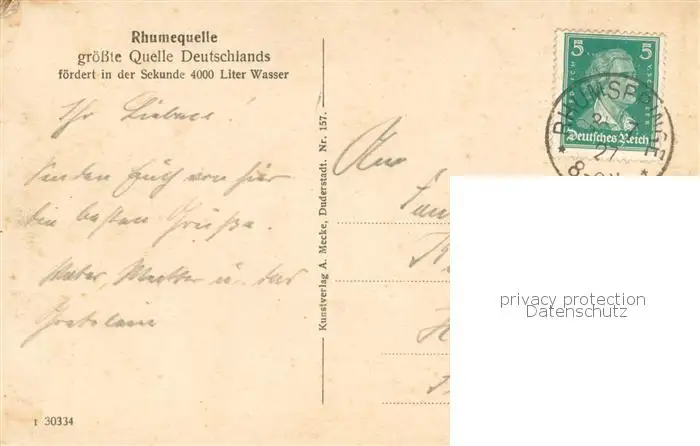 Rhumequelle
größte Quelle Deutschlands
fördert in der Sekunde 4000 Liter Wasser
Ihr Lieben!
Senden Euch von hier
die besten Grüße.
Vater, Mutter u. das
Kunstverlag A. Mecke, Duderstadt. Nr. 157.
An
5 5
Deutsches Reich
RHUMSPRINGE
27
8
privacy protection
Datenschutz
1 30334